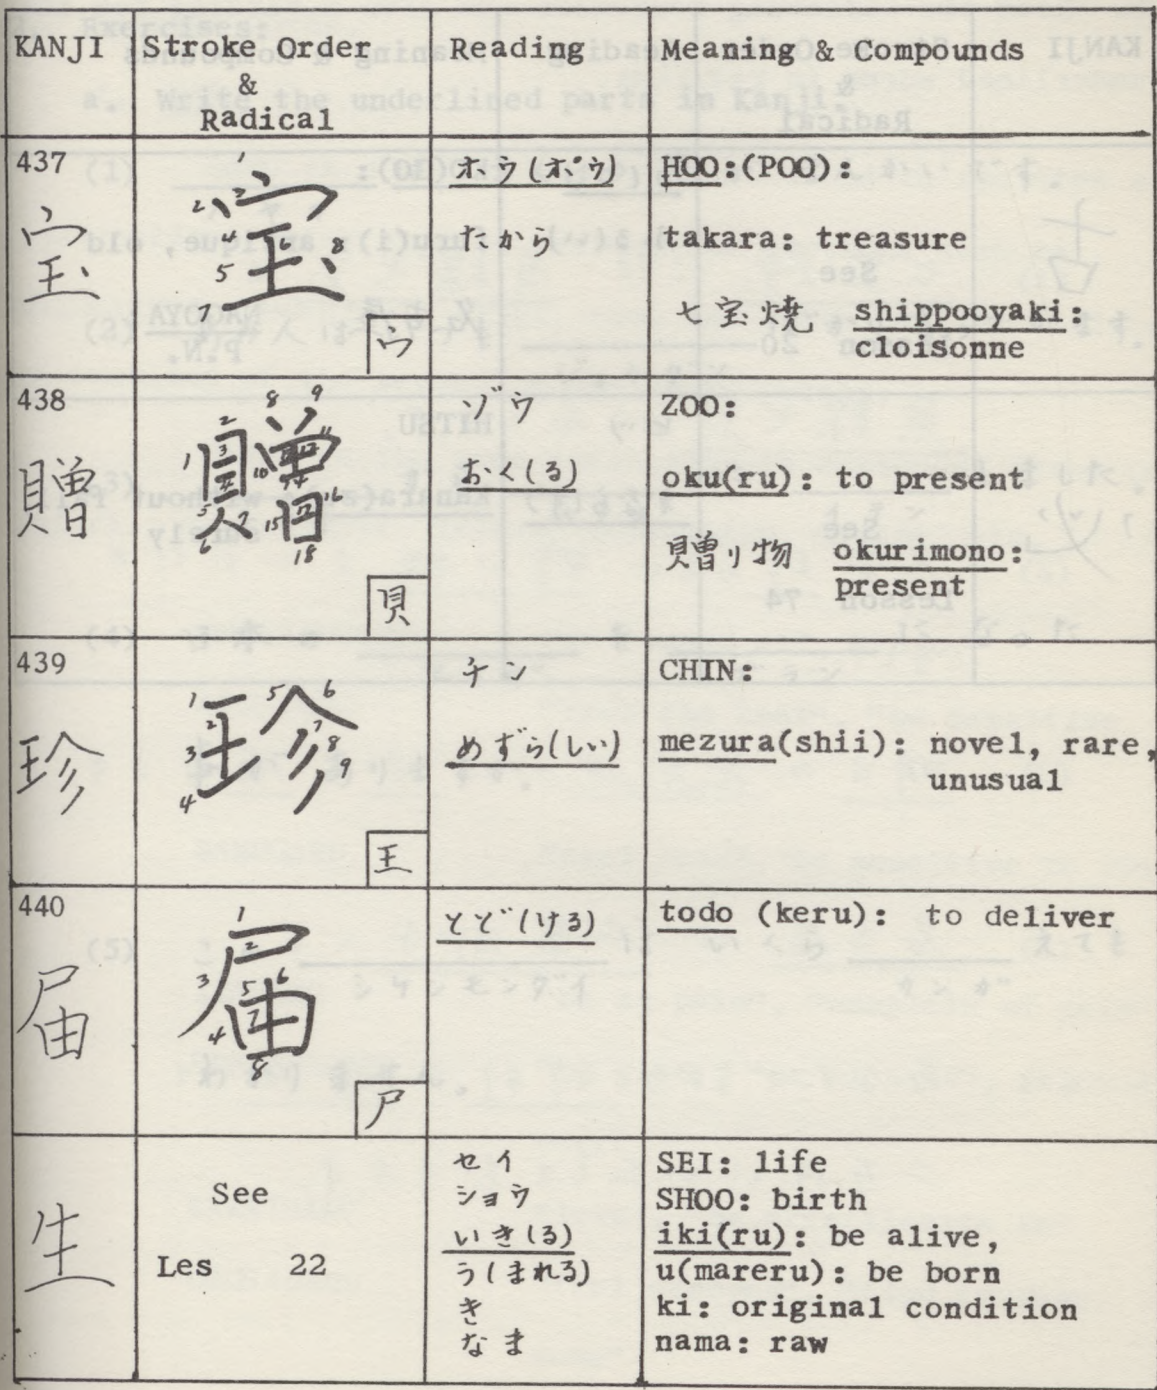 KANJI Stroke Order & Radical Reading Meaning & Compounds
437
宝
1 2 3 4 5 6 7 8
宝
宀
ホウ(ポウ)
たから
HOO:(POO):
takara: treasure
七宝焼 shippooyaki:
cloisonne
438
贈
贈
貝
ゾウ
おく(る)
ZOO:
oku(ru): to present
贈り物 okurimono:
present
439
珍
1 2 3 4 5 6 7 8 9
珍
王
チン
めずら(しい)
CHIN:
mezura(shii): novel, rare,
unusual
440
届
1 2 3 4 5 6 7 8
届
尸
とど(ける)
todo (keru): to deliver
生
See
Les 22
セイ
ショウ
いき(る)
う(まれる)
き
なま
SEI: life
SHOO: birth
iki(ru): be alive,
u(mareru): be born
ki: original condition
nama: raw